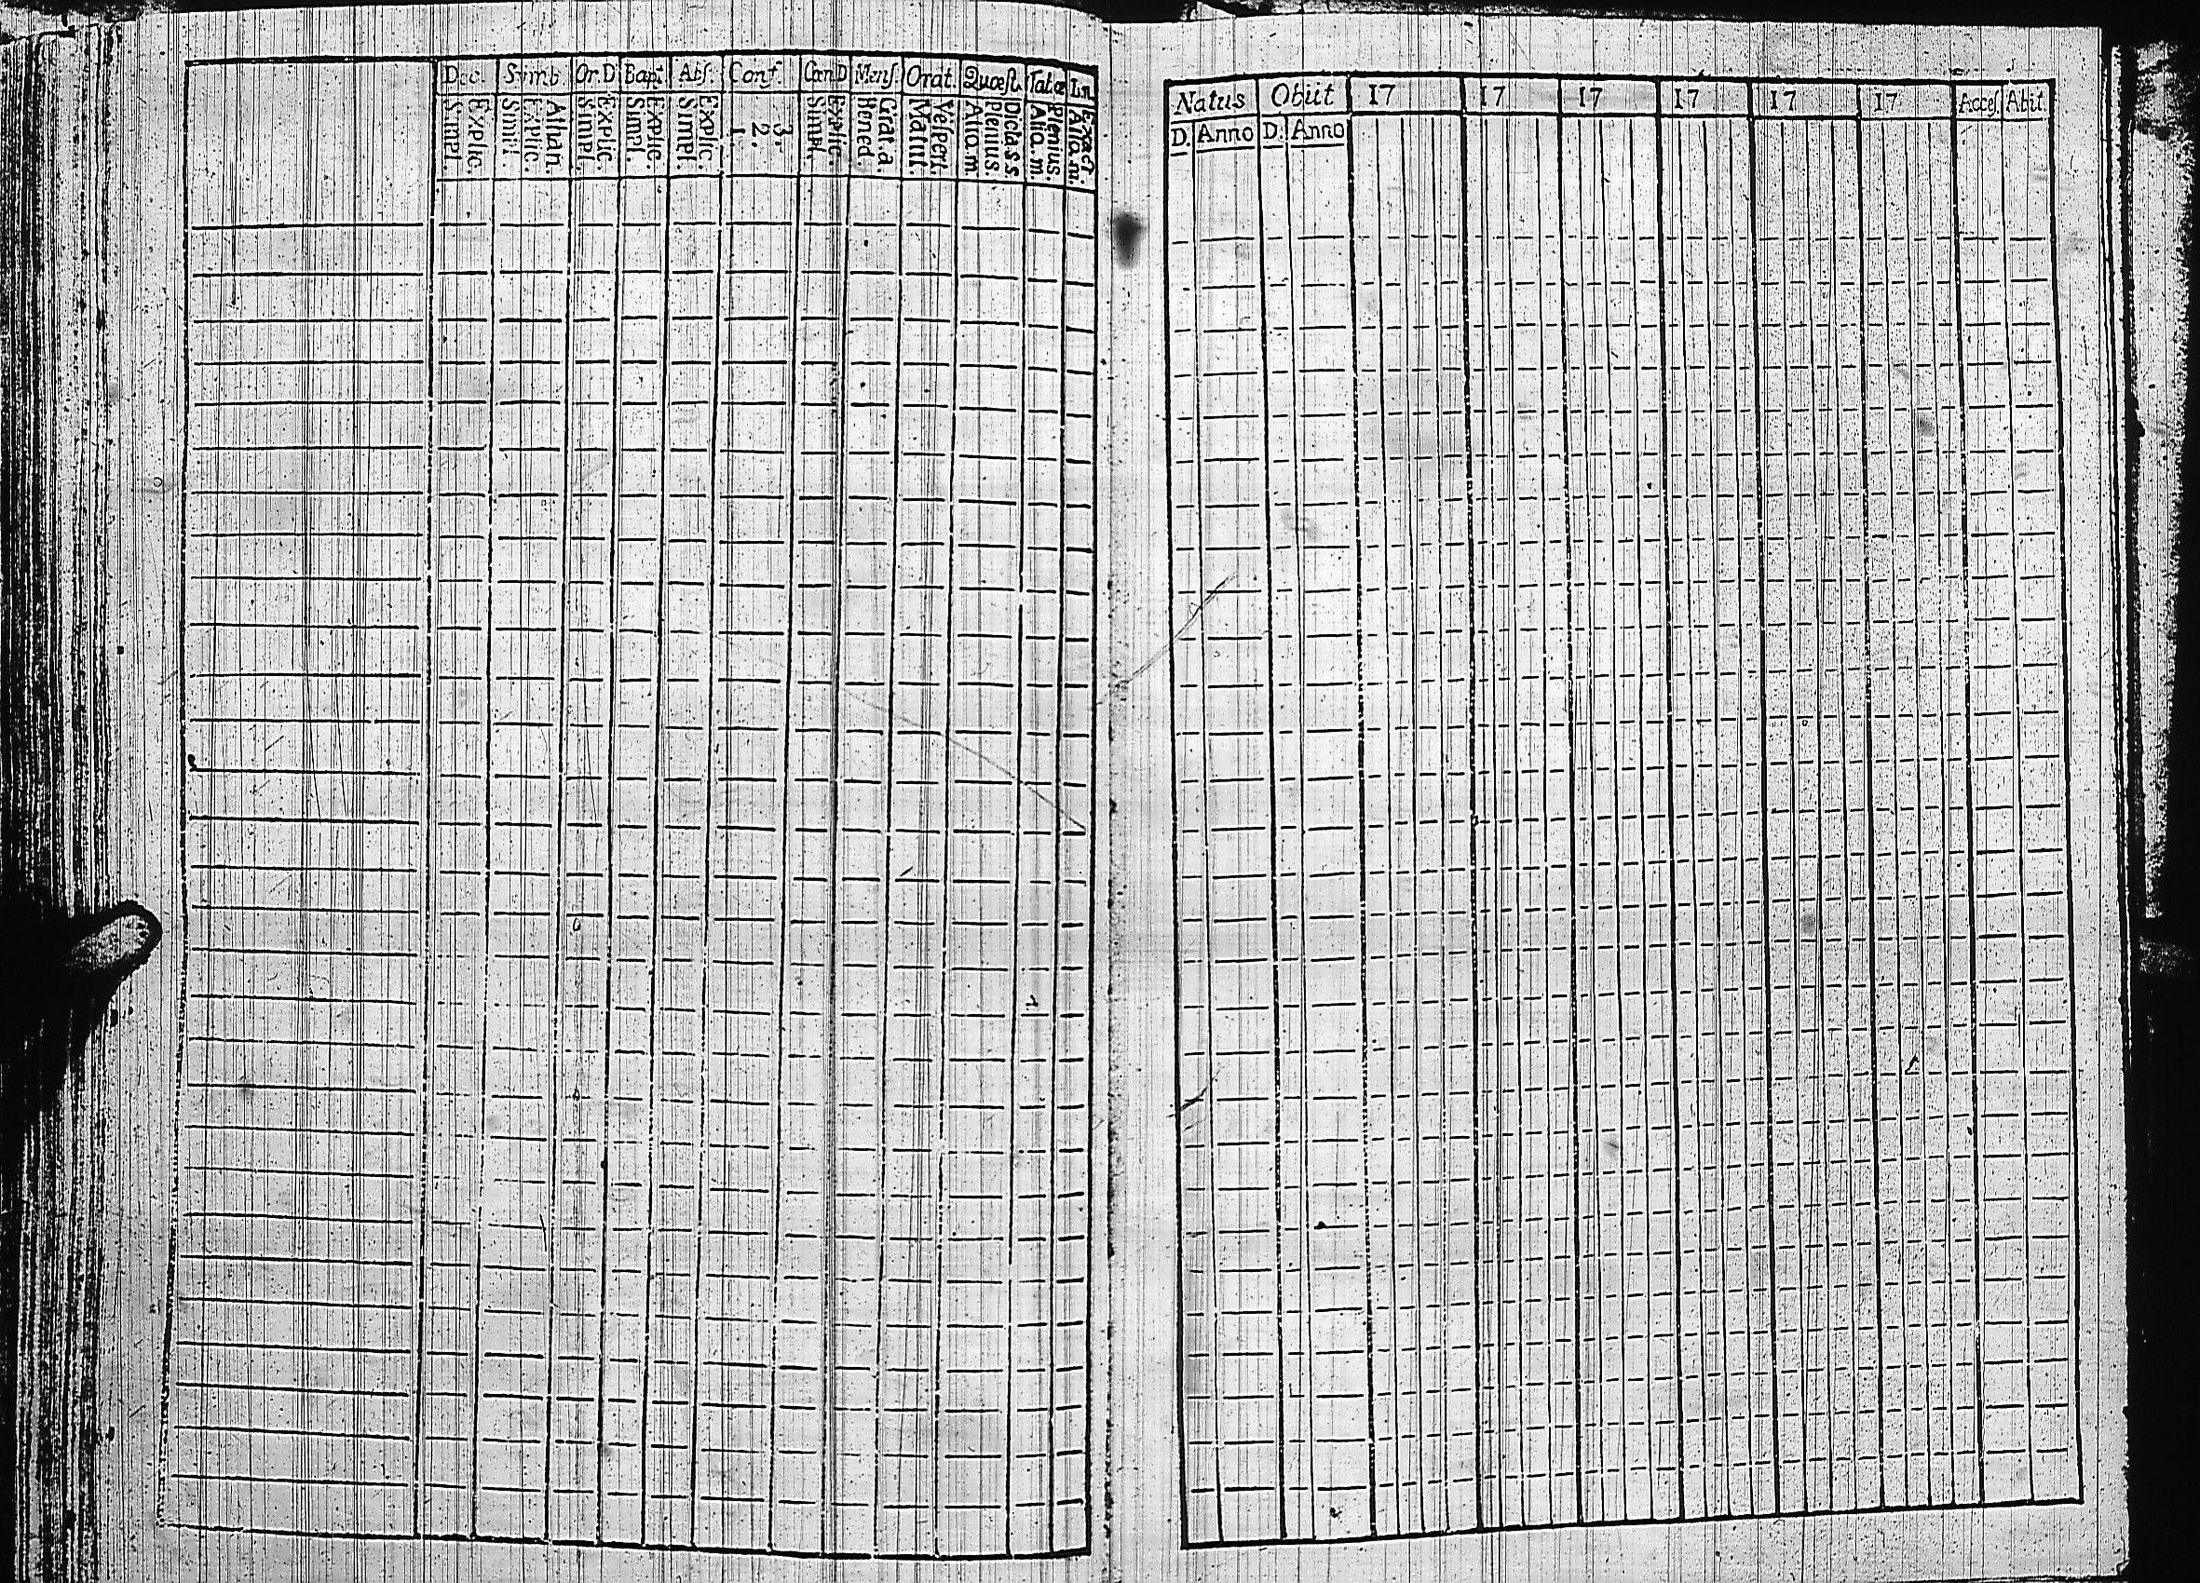 Dec. Symb. Or.D Bapt. Abſ. Conf. Cœn.D Menſ. Orat. Quæſt. Tabæ In.
Simpl. Explic. Simpl. Explic. Athan. Simpl. Explic. Simpl. Explic. Simpl. Explic. 1. 2. 3. Simpl. Explic. Bened. Grat. a. Matut. Veſpert. Alia.m Plenius. Dicta.s s Alia.m Plenius. Alia.m. Exact.
Natus Obiit 17 17 17 17 17 17 Acceſ. Abit.
D. Anno D. Anno